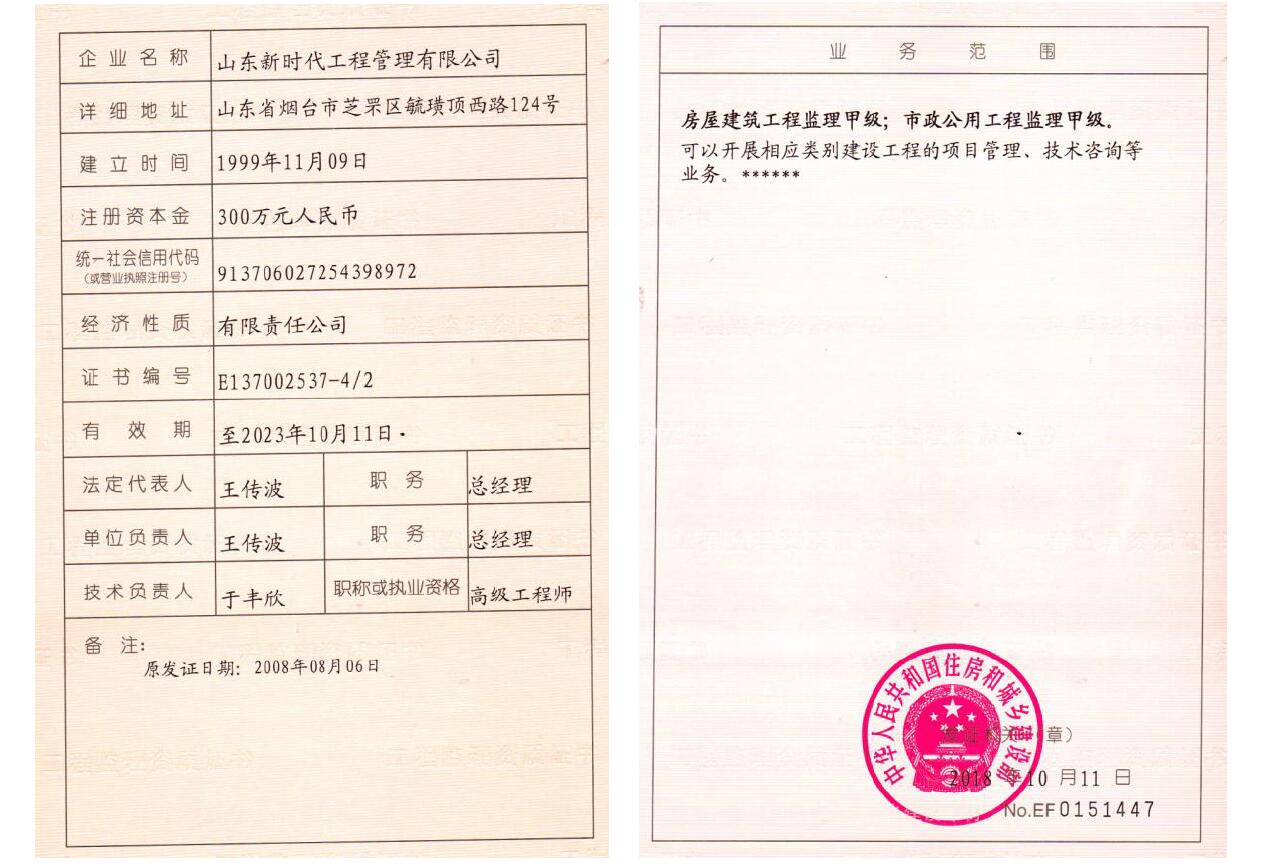 企业名称 山东新时代工程管理有限公司
详细地址 山东省烟台市芝罘区毓璜顶西路124号
建立时间 1999年11月09日
注册资本金 300万元人民币
统一社会信用代码 913706027254398972
(或营业执照注册号)
经济性质 有限责任公司
证书编号 E137002537-4/2
有效期 至2023年10月11日
法定代表人 王传波 职务 总经理
单位负责人 王传波 职务 总经理
技术负责人 于丰欣 职称或执业资格 高级工程师
备注:
原发证日期: 2008年08月06日
业务范围
房屋建筑工程监理甲级；市政公用工程监理甲级。
可以开展相应类别建设工程的项目管理、技术咨询等
业务。******
中华人民共和国住房和城乡建设部
发证机关（章）
2018年10月11日
No.EF0151447